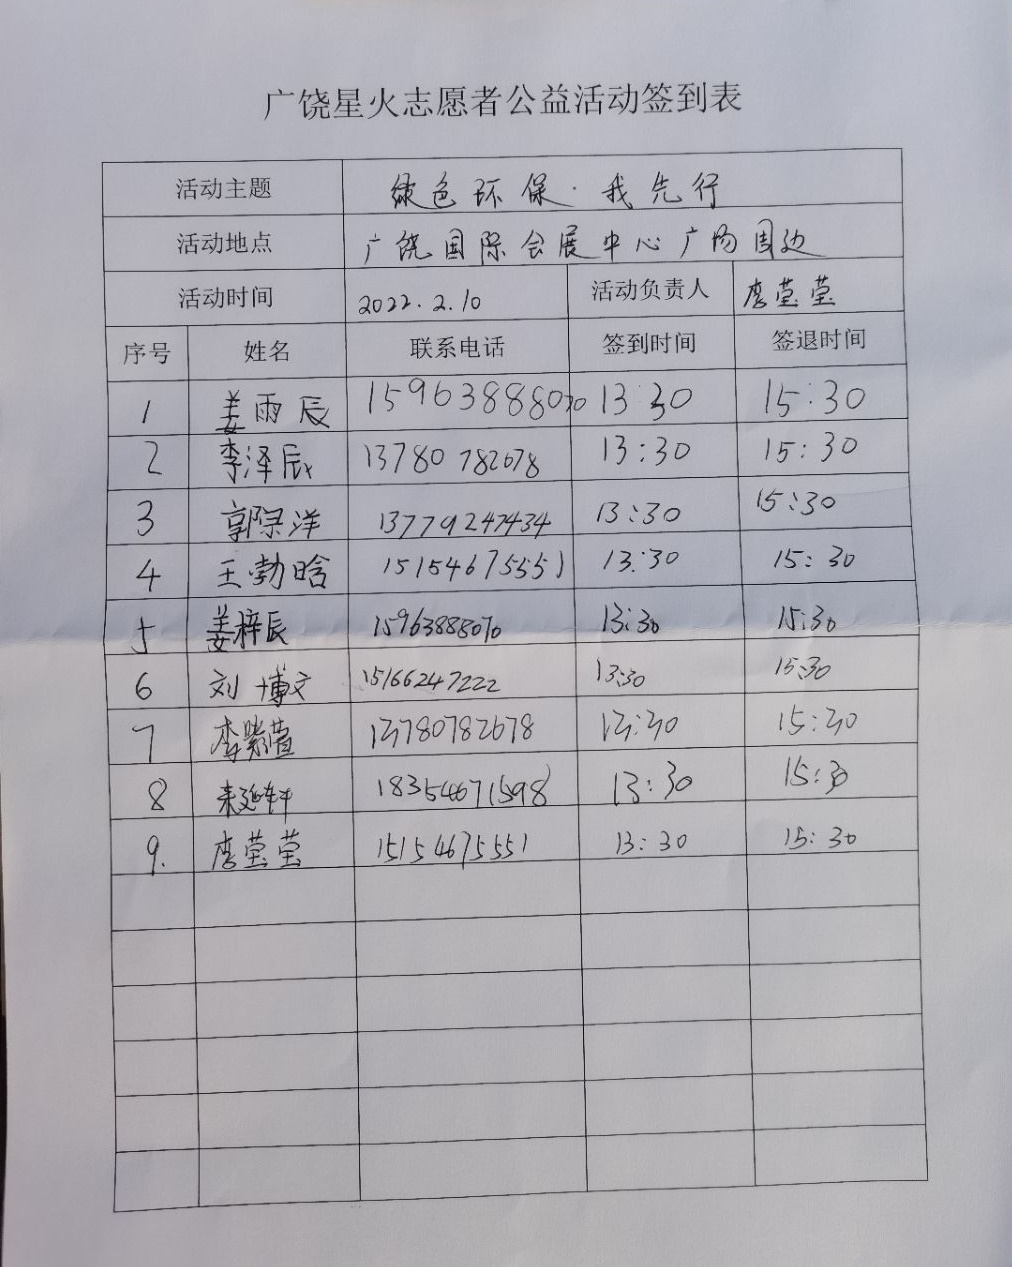 广饶星火志愿者公益活动签到表
活动主题 绿色环保·我先行
活动地点 广饶国际会展中心广场周边
活动时间 2022.2.10 活动负责人 李莹莹
序号 姓名 联系电话 签到时间 签退时间
1 姜雨辰 15963888070 13:30 15:30
2 李泽辰 13780782678 13:30 15:30
3 郭际洋 13779247434 13:30 15:30
4 王勃晗 15154675551 13:30 15:30
5 姜梓辰 15963888070 13:30 15:30
6 刘博文 15166247222 13:30 15:30
7 李紫萱 13780782678 13:30 15:30
8 延轩 18354671598 13:30 15:30
9. 李莹莹 15154675551 13:30 15:30